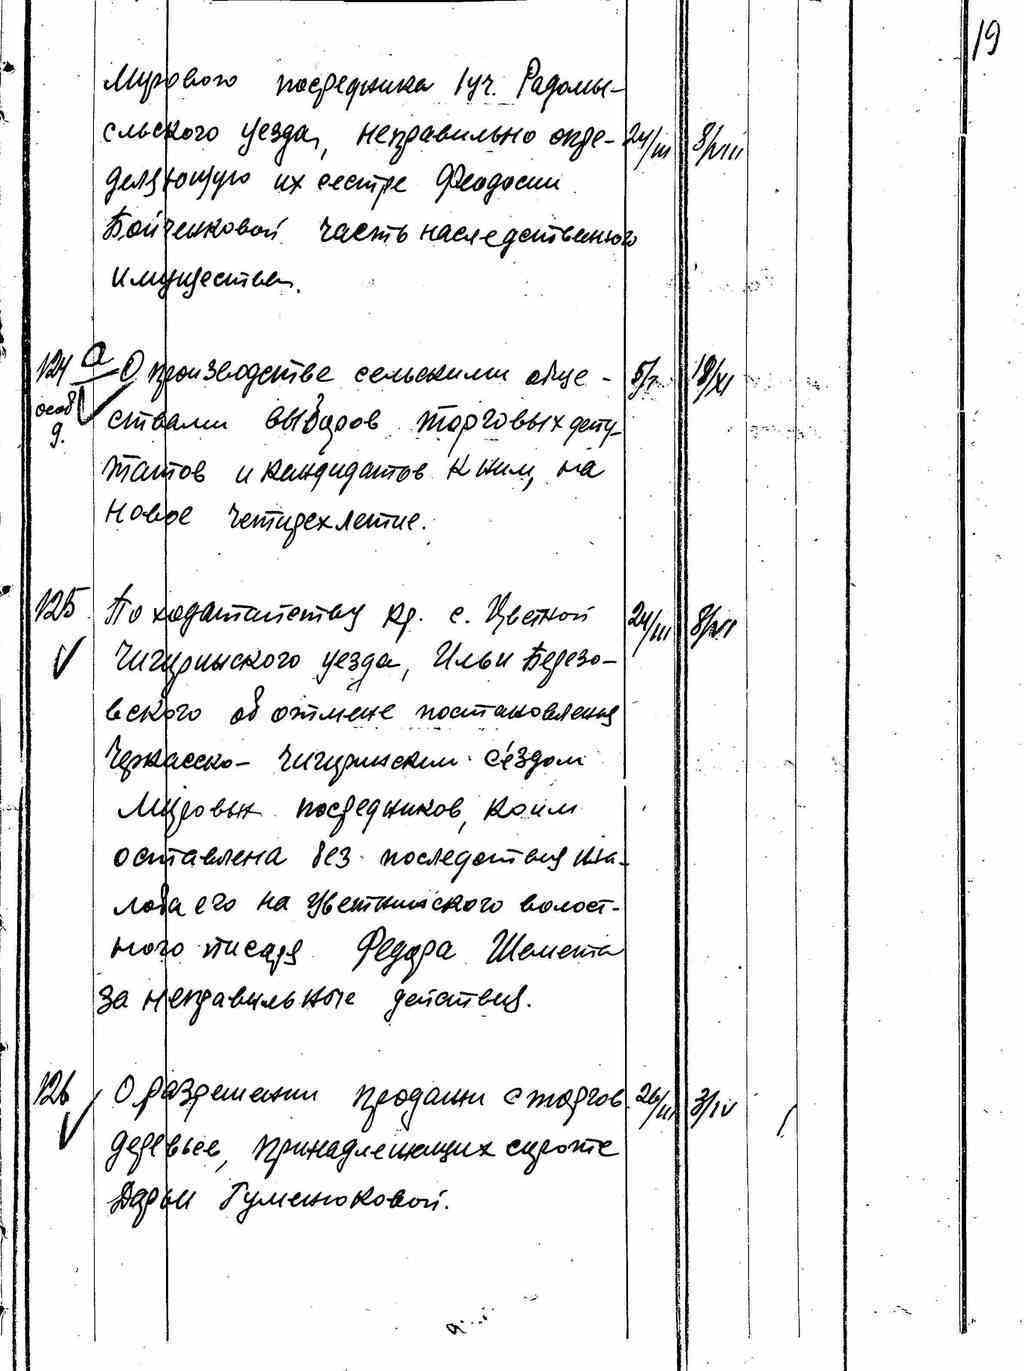 19
Мирового посредника 1 уч. Радомы-
сльского уезда, неправильно опре- 24/III 8/VIII
деляющую их сестре Феодосии
Бойченковой часть наследственного
имущества.
124 а О производстве сельскими обще- 18/XI
особ ствами выборов торговых депу-
9. татов и кандидатов к ним, на
новое четырехлетие.
125 По ходатайству кр. с. Цветной 24/III
Чигиринского уезда, Ильи Березо-
вского об отмене постановления
Черкасско-Чигиринским с'ездом
Мировых посредников, коим
оставлена без последствия жа-
лоба его на Цветнинского волост-
ного писаря Федора Шемета
за неправильные действия.
126 О разрешении продажи с торгов 26/III 3/IV
деревьев, принадлежащих сироте
Дарьи Гуменюковой.